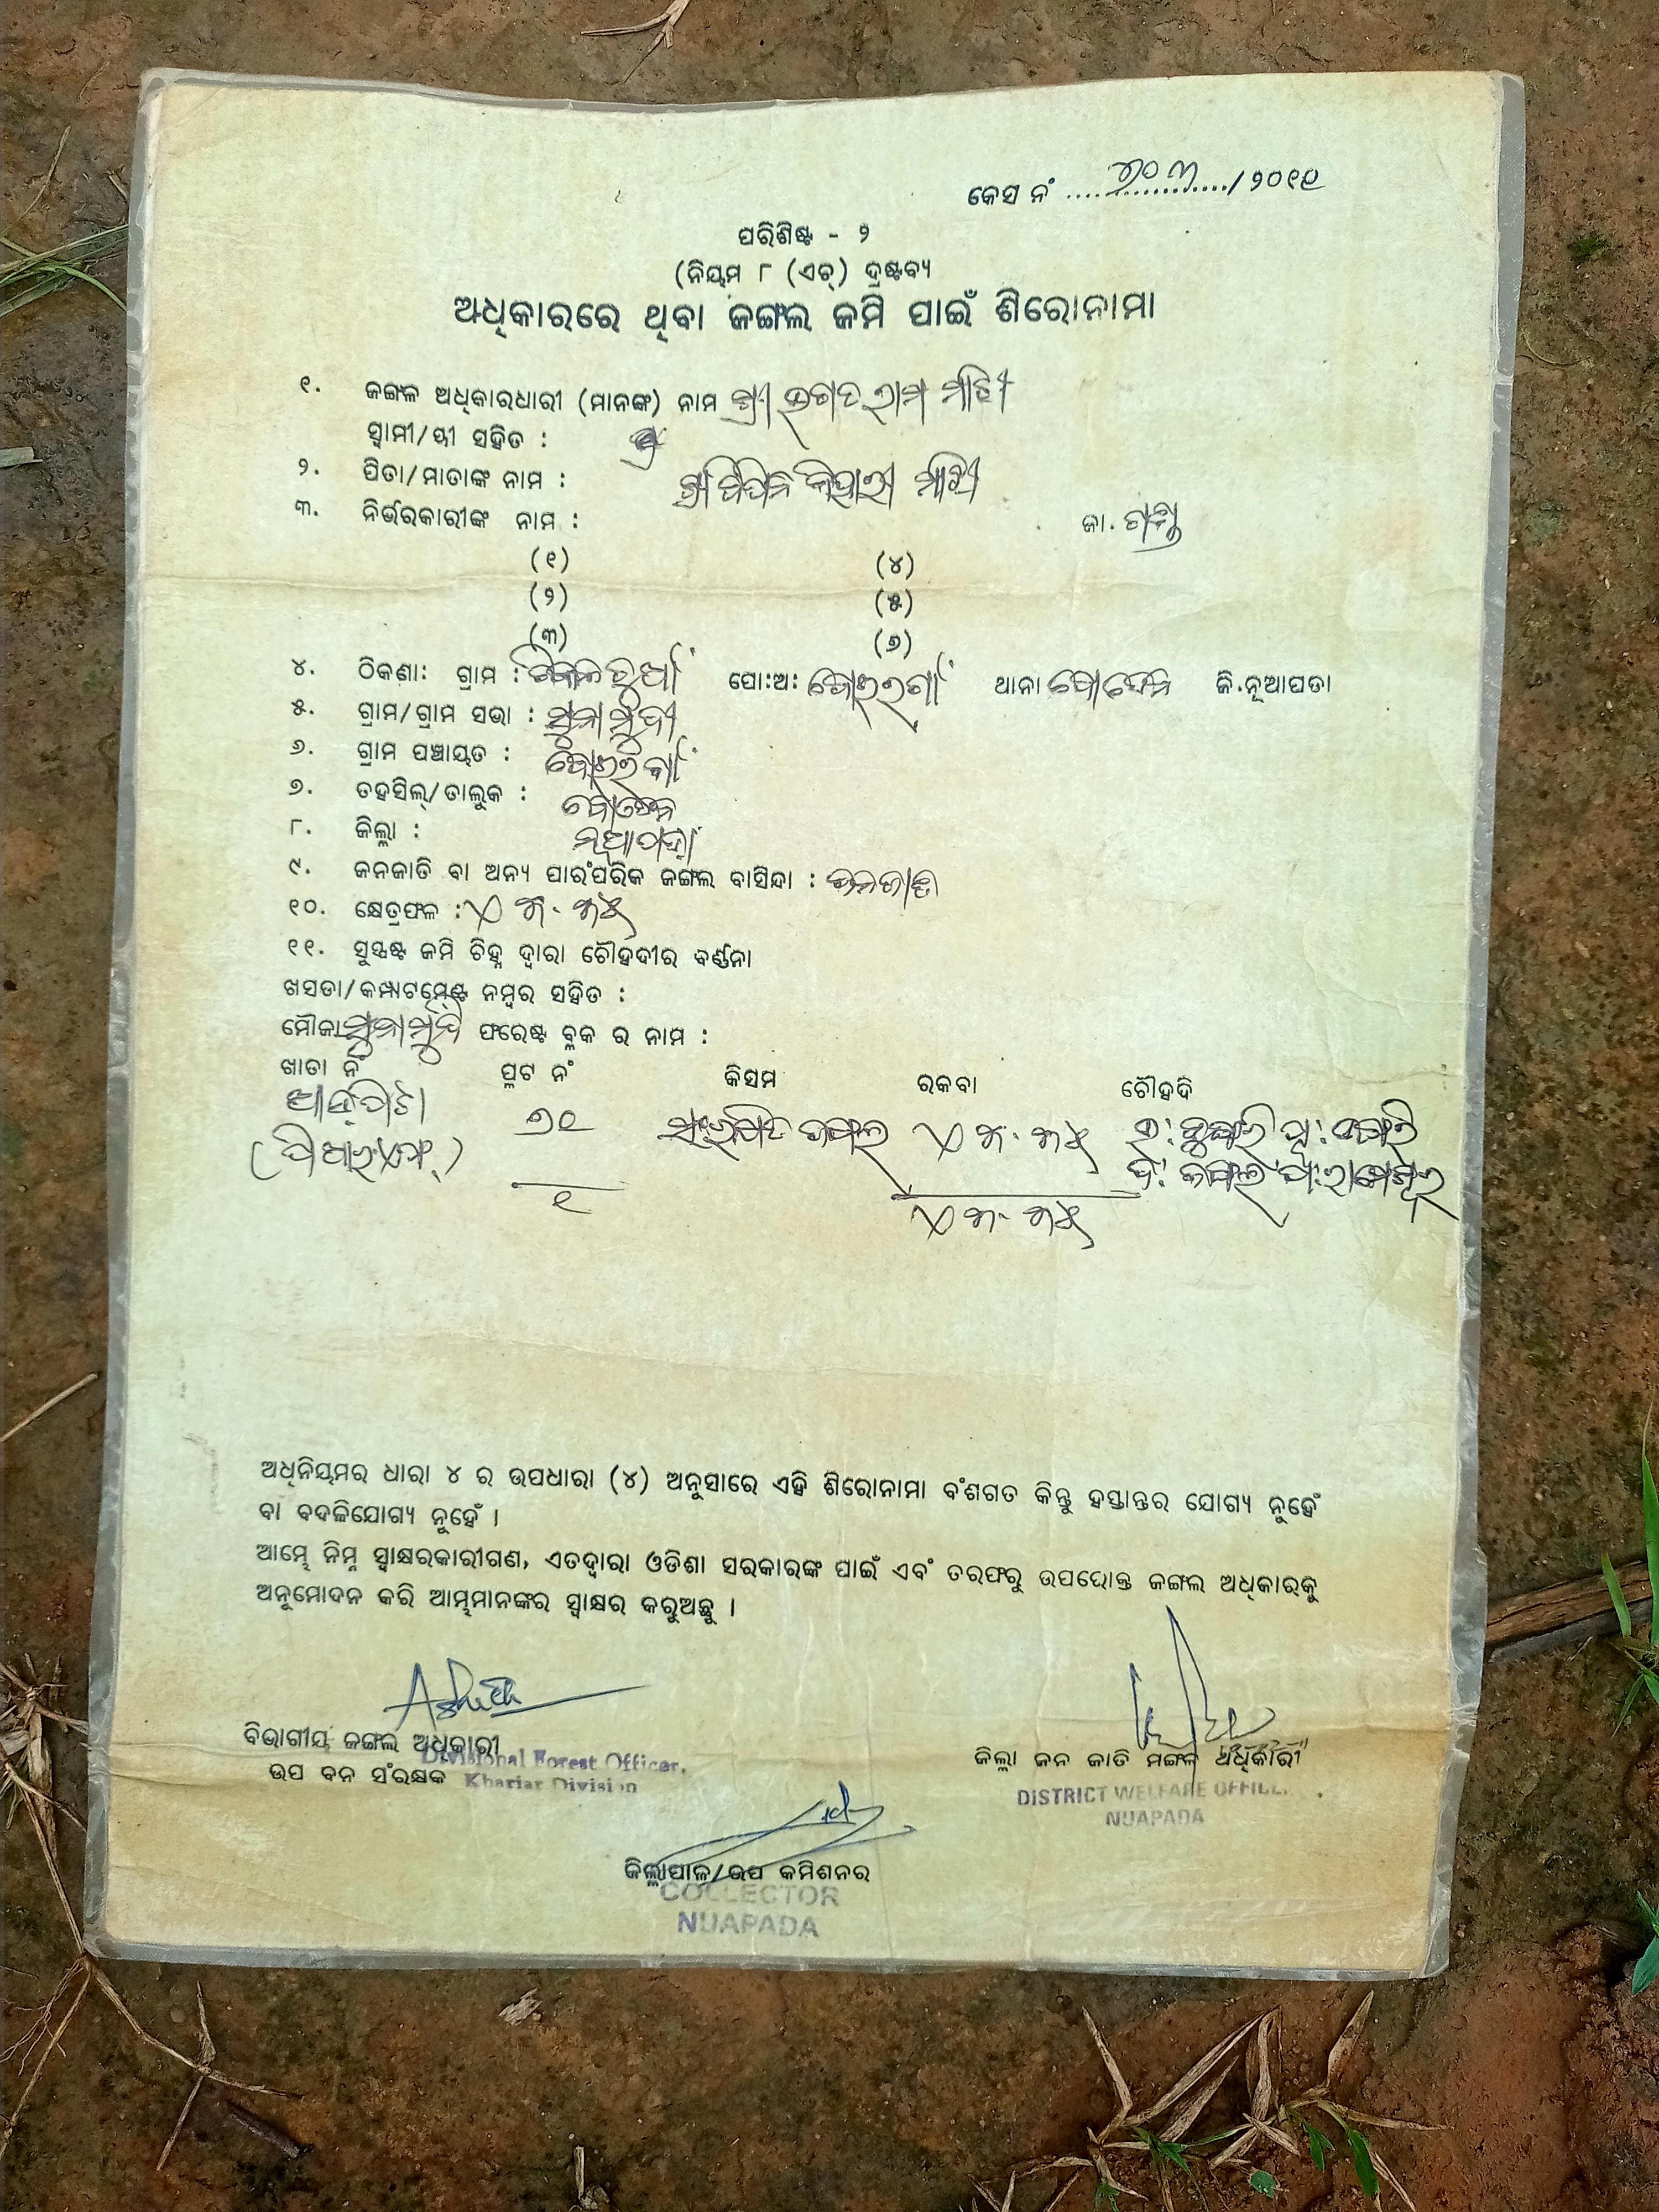 କେସ ନଂ ................/୨୦୧୧
ପରିଶିଷ୍ଟ - ୨
(ନିୟମ ୮ (ଏଚ୍) ଦ୍ରଷ୍ଟବ୍ୟ
ଅଧିକାରରେ ଥିବା ଜଙ୍ଗଲ ଜମି ପାଇଁ ଶିରୋନାମା
୧. ଜଙ୍ଗଳ ଅଧିକାରଧାରୀ (ମାନଙ୍କ) ନାମ ଶ୍ରୀ ଭଗତ ରାମ ମାଝୀ
ସ୍ୱାମୀ/ସ୍ତ୍ରୀ ସହିତ :
୨. ପିତା/ମାତାଙ୍କ ନାମ : ମାଝୀ
୩. ନିର୍ଭରକାରୀଙ୍କ ନାମ : ଜା. ଗଣ୍ଡ
(୧) (୪)
(୨) (୫)
(୩) (୬)
୪. ଠିକଣା: ଗ୍ରାମ : ପୋ:ଅ: ଥାନା ବୋଡେନ ଜି.ନୂଆପଡା
୫. ଗ୍ରାମ/ଗ୍ରାମ ସଭା : ସୁନାମୁଦୀ
୬. ଗ୍ରାମ ପଞ୍ଚାୟତ :
୭. ତହସିଲ୍/ତାଲୁକ : ବୋଡେନ
୮. ଜିଲ୍ଲା : ନୂଆପଡ଼ା
୯. ଜନଜାତି ବା ଅନ୍ୟ ପାରଂପରିକ ଜଙ୍ଗଲ ବାସିନ୍ଦା : ଜନଜାତି
୧୦. କ୍ଷେତ୍ରଫଳ :
୧୧. ସୁସ୍ପଷ୍ଟ ଜମି ଚିହ୍ନ ଦ୍ୱାରା ଚୌହଦୀର ବର୍ଣ୍ଣନା
ଖସଡା/କମ୍ପାଟମେଣ୍ଟ ନମ୍ବର ସହିତ :
ମୌଜା ସୁନାମୁଦି ଫରେଷ୍ଟ ବ୍ଳକ ର ନାମ :
ଖାତା ନଂ ପ୍ଳଟ ନଂ କିସମ ରକବା ଚୌହଦି
୭୧ ସଂରକ୍ଷିତ ଜଙ୍ଗଲ
ଦ: ଜଙ୍ଗଲ ପ: ରାମେଶ୍ୱର
୧
ଅଧିନିୟମର ଧାରା ୪ ର ଉପଧାରା (୪) ଅନୁସାରେ ଏହି ଶିରୋନାମା ବଂଶଗତ କିନ୍ତୁ ହସ୍ତାନ୍ତର ଯୋଗ୍ୟ ନୁହେଁ
ବା ବଦଳିଯୋଗ୍ୟ ନୁହେଁ ।
ଆମ୍ଭେ ନିମ୍ନ ସ୍ୱାକ୍ଷରକାରୀଗଣ, ଏତଦ୍ୱାରା ଓଡିଶା ସରକାରଙ୍କ ପାଇଁ ଏବଂ ତରଫରୁ ଉପରୋକ୍ତ ଜଙ୍ଗଲ ଅଧିକାରକୁ
ଅନୁମୋଦନ କରି ଆମ୍ଭମାନଙ୍କର ସ୍ୱାକ୍ଷର କରୁଅଛୁ ।
ବିଭାଗୀୟ ଜଙ୍ଗଲ ଅଧିକାରୀ
Divisional Forest Officer,
ଉପ ବନ ସଂରକ୍ଷକ Khariar Division
ଜିଲ୍ଲା ଜନ ଜାତି ମଙ୍ଗଳ ଅଧିକାରୀ
DISTRICT WELFARE OFFICE,
NUAPADA
ଜିଲ୍ଲାପାଳ/ଉପ କମିଶନର
COLLECTOR
NUAPADA